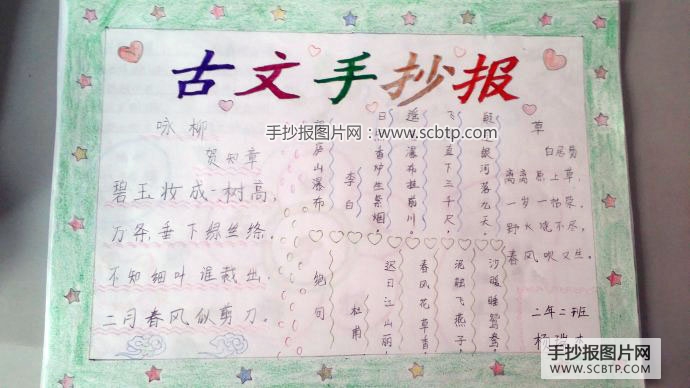 古文手抄报
咏柳
贺知章
碧玉妆成一树高,
万条垂下绿丝绦。
不知细叶谁裁出
二月春风似剪刀。
庐山瀑布
李白
日 香炉生紫烟,
遥 瀑布挂前川。
飞 直下三千尺,
疑 银河落九天。
绝句
杜甫
迟日江山丽,
春风花草香
泥融飞燕子,
沙暖睡鸳鸯。
草
白居易
离离原上草,
一岁一枯荣。
野火烧不尽,
春风吹又生。
二年二班
杨
手抄报图片网:www.scbtp.com
手抄报图片网
SCBTP.COM